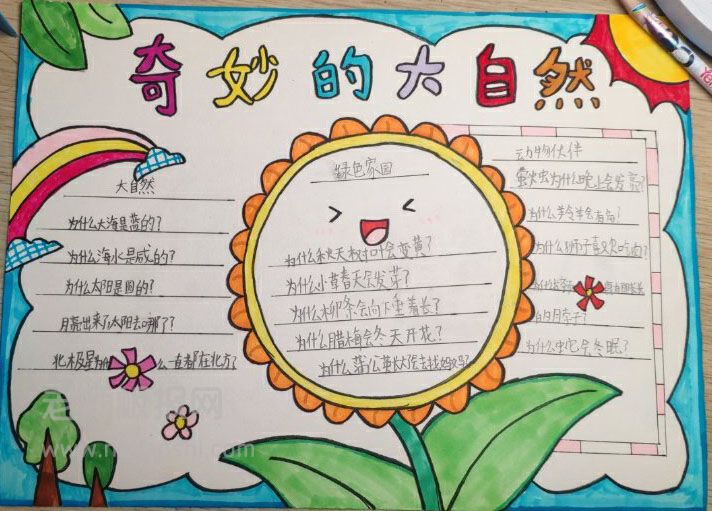 奇妙的大自然
大自然
为什么大海是蓝的?
为什么海水是咸的?
为什么太阳是圆的?
月亮出来了太阳去哪了?
北极星为什么一直都在北方?
绿色家园
为什么秋天树叶会变黄?
为什么小草春天会发芽?
为什么柳条会向下垂着长?
为什么腊梅会冬天开花?
为什么蒲公英长大后去找妈妈?
动物伙伴
萤火虫为什么晚上会发亮?
为什么羚羊会有角?
为什么狮子喜欢吃肉?
为什么
的脖子?
为什么蛇会冬眠?